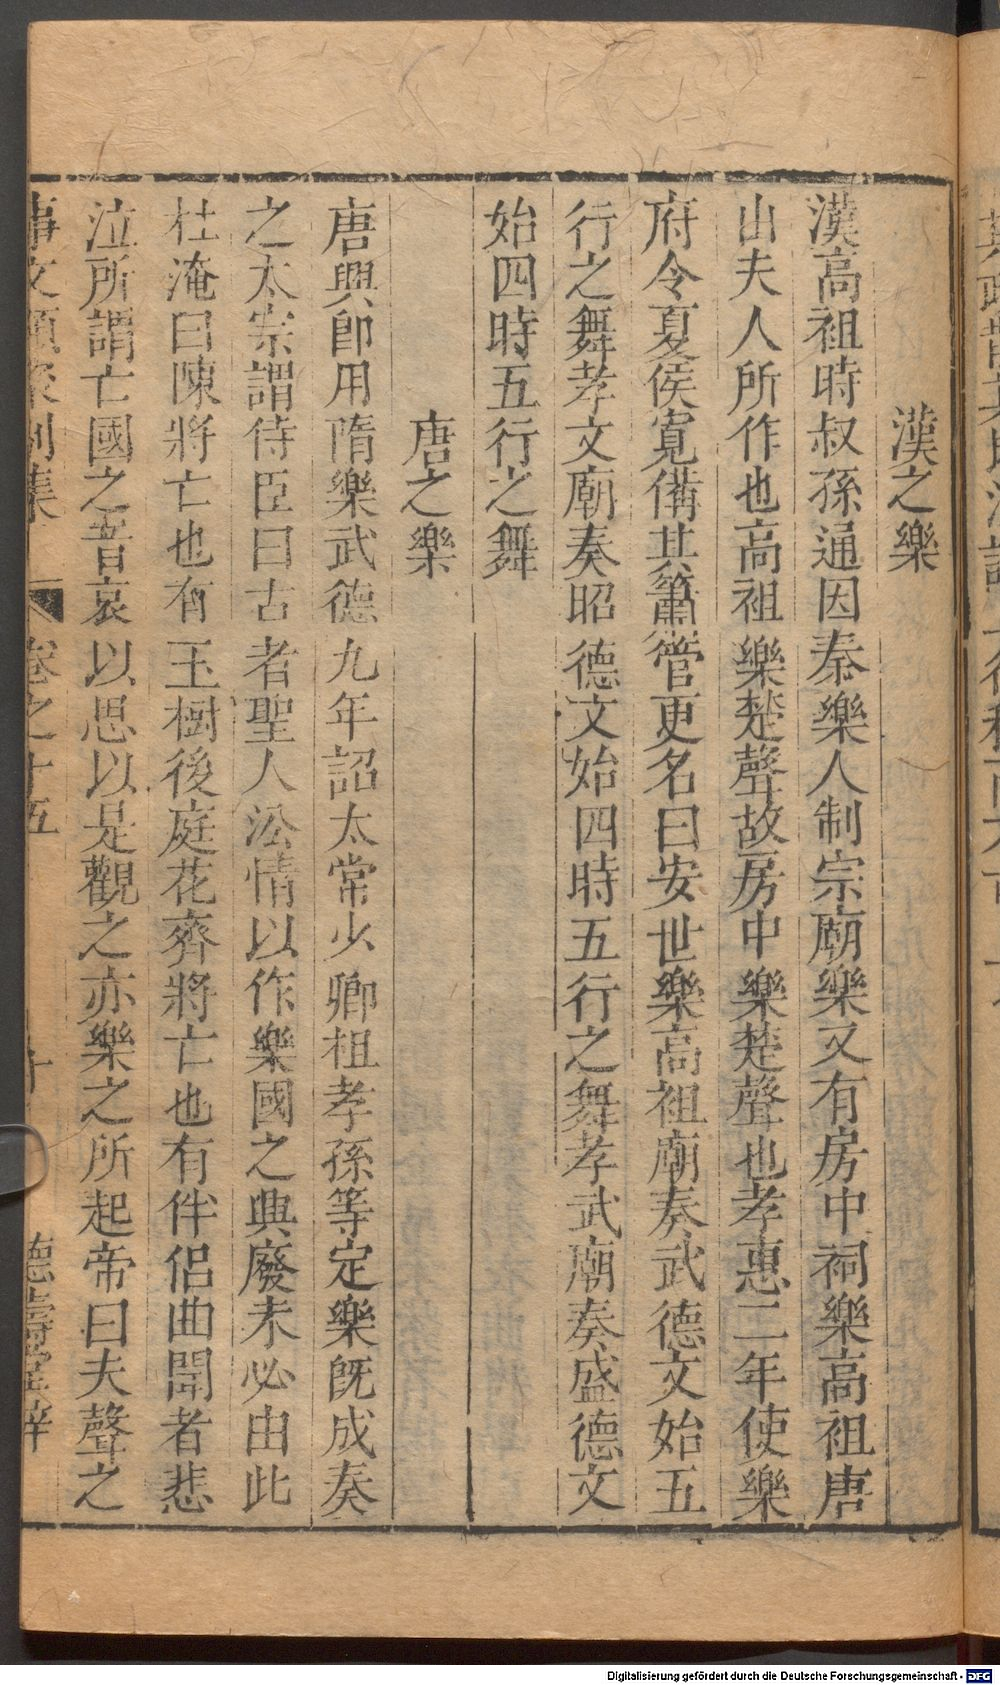 漢之樂
漢高祖時叔孫通因秦樂人制宗廟樂又有房中祠樂高祖唐
山夫人所作也高祖樂楚聲故房中樂楚聲也孝惠二年使樂
府令夏侯寬備其簫管更名曰安世樂高祖廟奏武德文始五
行之舞孝文廟奏昭德文始四時五行之舞孝武廟奏盛德文
始四時五行之舞
唐之樂
唐興即用隋樂武德九年詔太常少卿祖孝孫等定樂旣成奏
之太宗謂侍臣曰古者聖人㳂情以作樂國之興廢未必由此
杜淹曰陳將亡也有玉樹後庭花齊將亡也有伴侶曲聞者悲
泣所謂亡國之音哀以思以是觀之亦樂之所起帝曰夫聲之
事文類聚別集 卷之十五 十 德壽堂梓
Digitalisierung gefördert durch die Deutsche Forschungsgemeinschaft - DFG